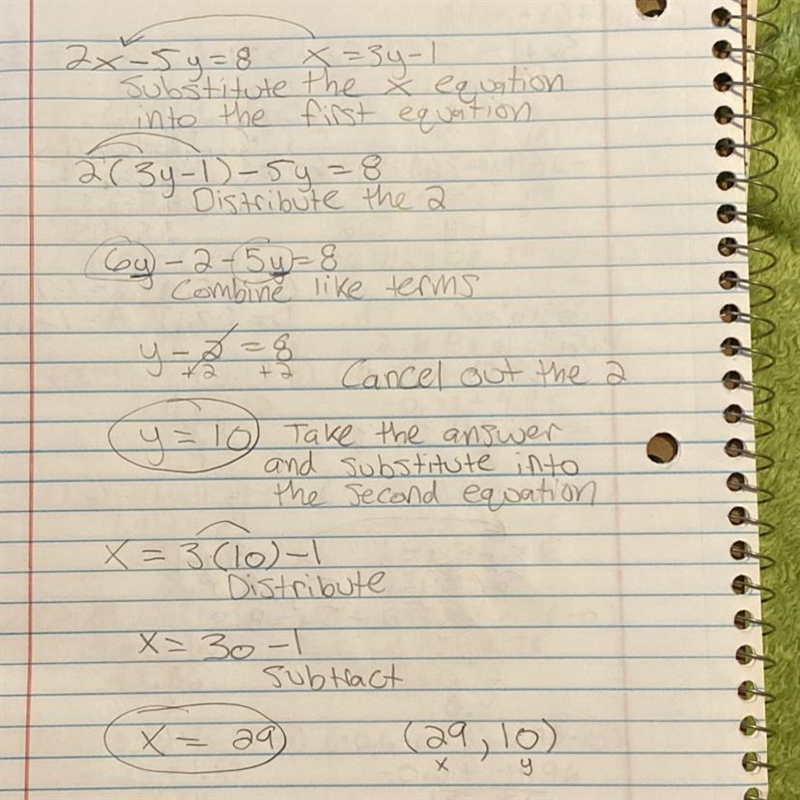 2x-5y=8 x=3y-1
Substitute the x equation
into the first equation
2(3y-1)-5y=8
Distribute the 2
6y-2-5y=8
Combine like terms
y-2=8
+2 +2 Cancel out the 2
y=10 Take the answer
and substitute into
the second equation
x=3(10)-1
Distribute
x=30-1
Subtract
x=29 (29,10)
x y